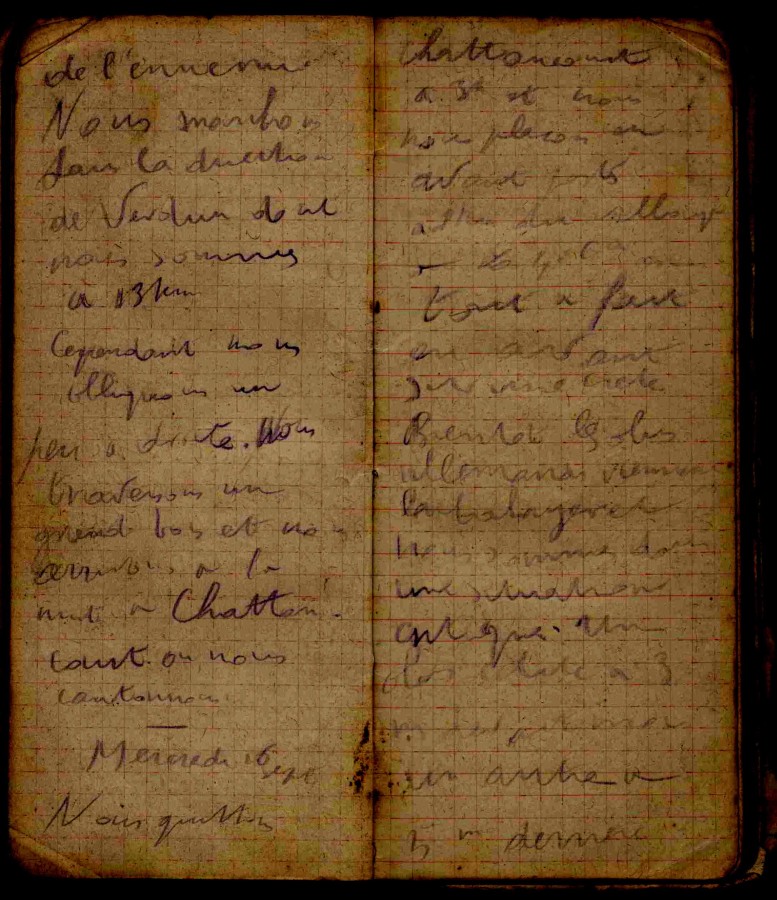 de l'ennemi
Nous marchons
dans la direction
de Verdun dont
nous sommes
a 13 km
Cependant nous
obliquons un
peu a droite. Nous
traversons un
grand bois et nous
arrivons a la
nuit a Chattan-
court ou nous
cantonnons
Mercredi 16 sept
Nous quittons
Chattancourt
a 3h et nous
nous placons en
avant postes
du village
tout a fait
en avant
sur une crete
Bientot les obus
allemands viennent
la balayer et
nous sommes dans
une situation
critique. Un
obus eclate a 3
m
un autre a
5 m derriere